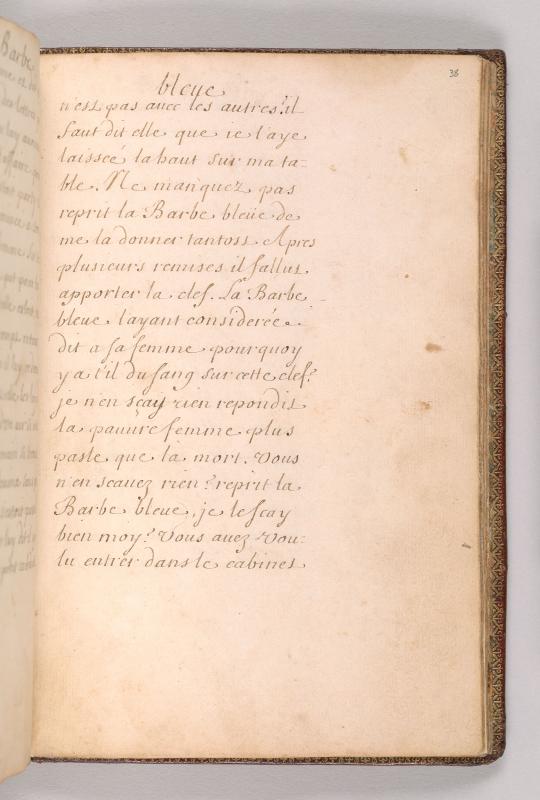 38
bleue
n'est pas avec les autres? il
faut dit elle que ie l'aye
laisseé la haut sur ma ta-
ble. Ne manquez pas
reprit la Barbe bleüe de
me la donner tantost. Apres
plusieurs remises il fallut
apporter la clef. La Barbe
bleue layant considerée
dit a sa femme pourquoy
y a t'il du sang sur cette clef?
je n'en sçay rien repondit
la pauure femme plus
pasle que la mort. Vous
n'en scauez rien? reprit la
Barbe bleue, je le scay
bien moy? Vous auez vou-
lu entrer dans le cabinet